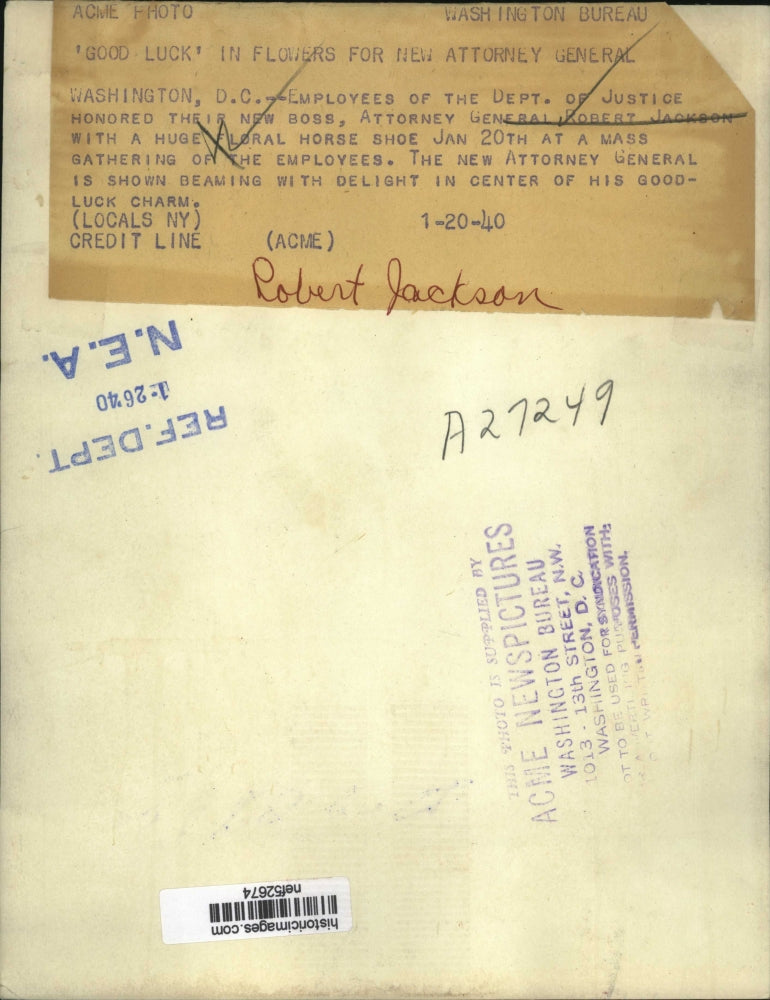 ACME PHOTO WASHINGTON BUREAU
'GOOD LUCK' IN FLOWERS FOR NEW ATTORNEY GENERAL
WASHINGTON, D.C.--EMPLOYEES OF THE DEPT. OF JUSTICE
HONORED THEIR NEW BOSS, ATTORNEY GENERAL ROBERT JACKSON
WITH A HUGE FLORAL HORSE SHOE JAN 20TH AT A MASS
GATHERING OF THE EMPLOYEES. THE NEW ATTORNEY GENERAL
IS SHOWN BEAMING WITH DELIGHT IN CENTER OF HIS GOOD-
LUCK CHARM.
(LOCALS NY) 1-20-40
CREDIT LINE (ACME)
Robert Jackson
REF.DEPT.
1-26-40
N.E.A.
A27249
THIS PHOTO IS SUPPLIED BY
ACME NEWSPICTURES
WASHINGTON BUREAU
WASHINGTON STREET, N.W.
1013 - 13th STREET, N.W.
WASHINGTON, D. C.
FOR SYNDICATION
OT TO BE USED PURPOSES WITH-
PERMISSION.
historicimages.com
nef52674